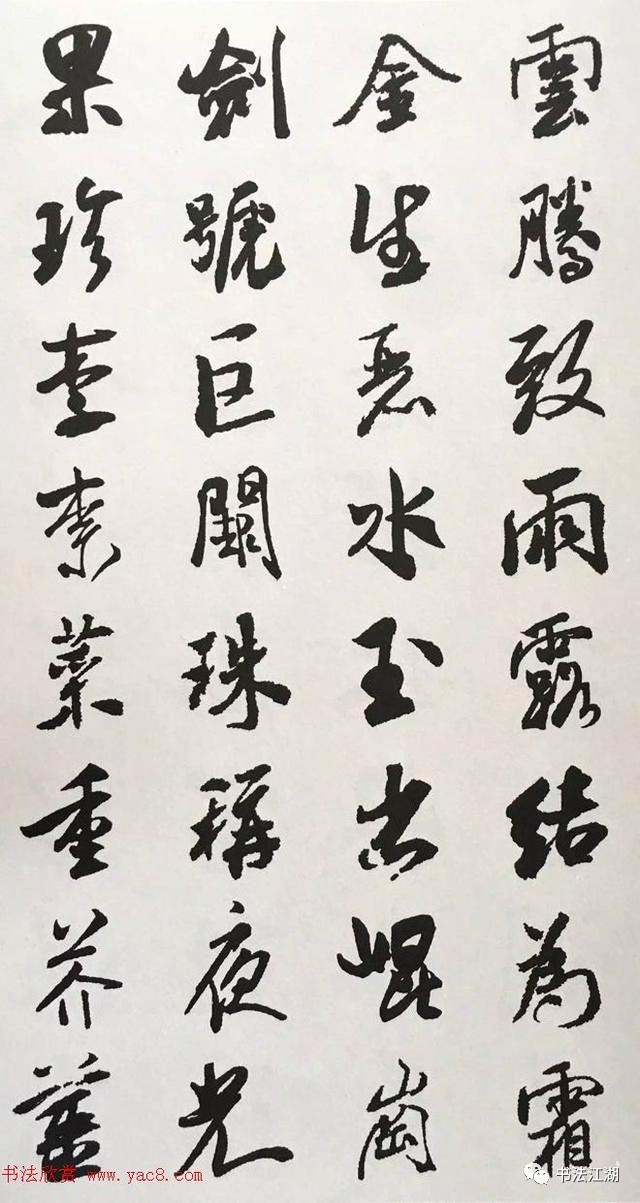 雲騰致雨露結為霜
金生麗水玉出崐崗
劍號巨闕珠稱夜光
果珍李柰菜重芥薑
书法欣赏 www.yac8.com
书法江湖